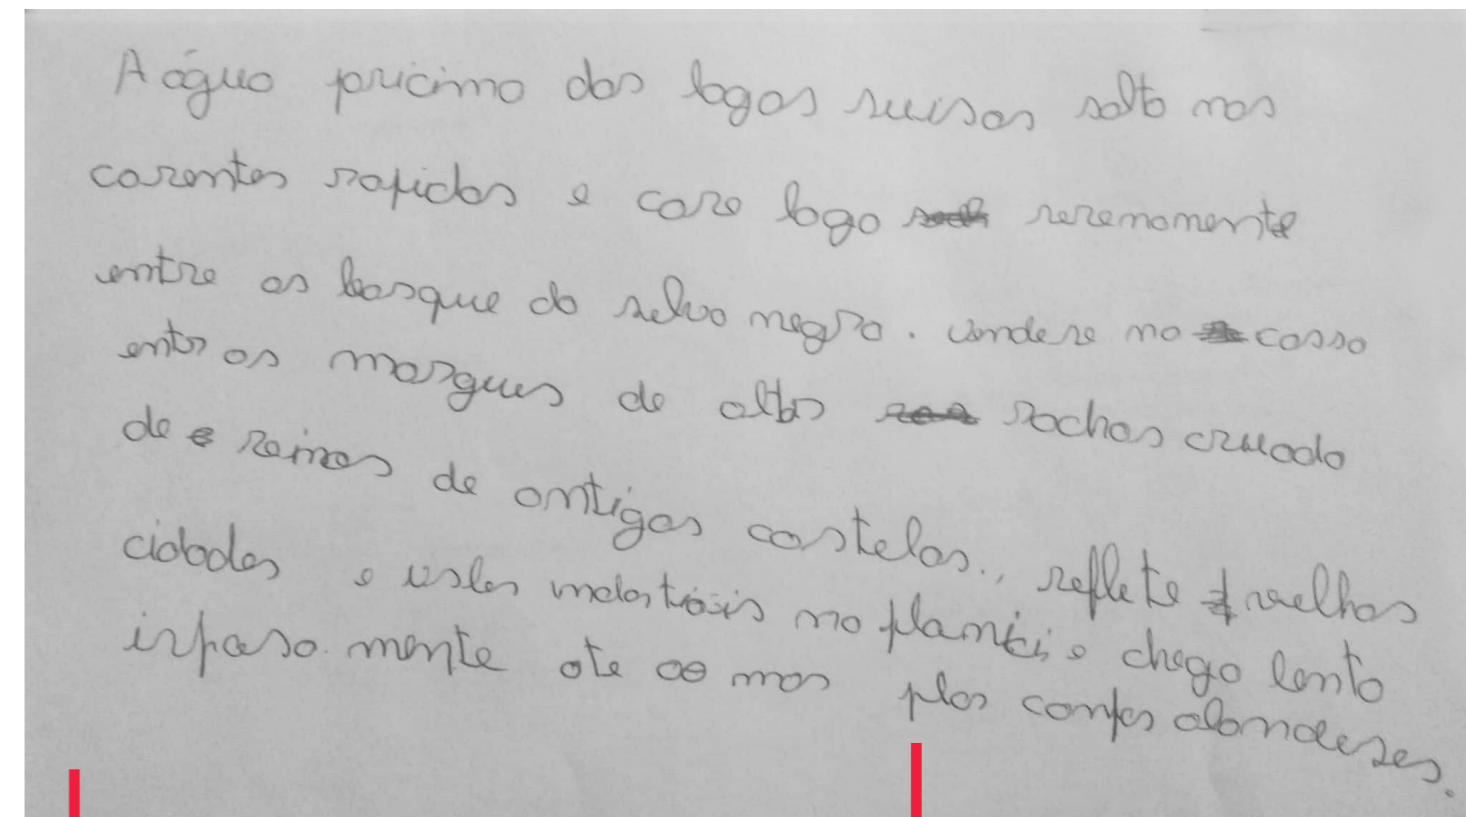 A água pricimo dos lagos suisos salta nas
corentes rapidas e core logo seremamente
entre os bosque da selva negra. vonde se na cosso
entr as margues de altas rochas cruado
de reinos de antigos castelos., reflete velhas
cidades e vales indostriais na planici, e chega lenta
ispaso.mente ate oo mar plos campos olamdeses.